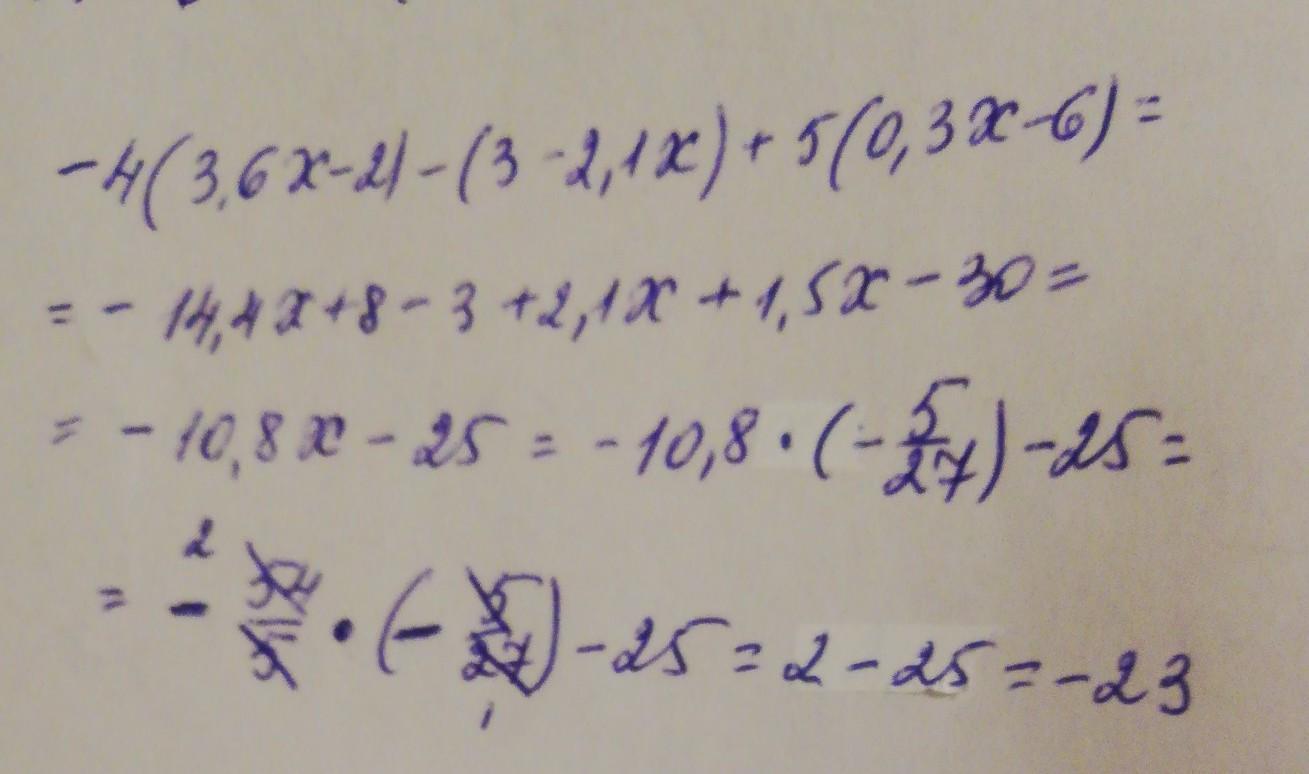 -4(3,6x-2)-(3-2,1x)+5(0,3x-6)=
=-14,4x+8-3+2,1x+1,5x-30=
=-10,8x-25=-10,8·(-5/27)-25=
=-54/5·(-5/27)-25=2-25=-23